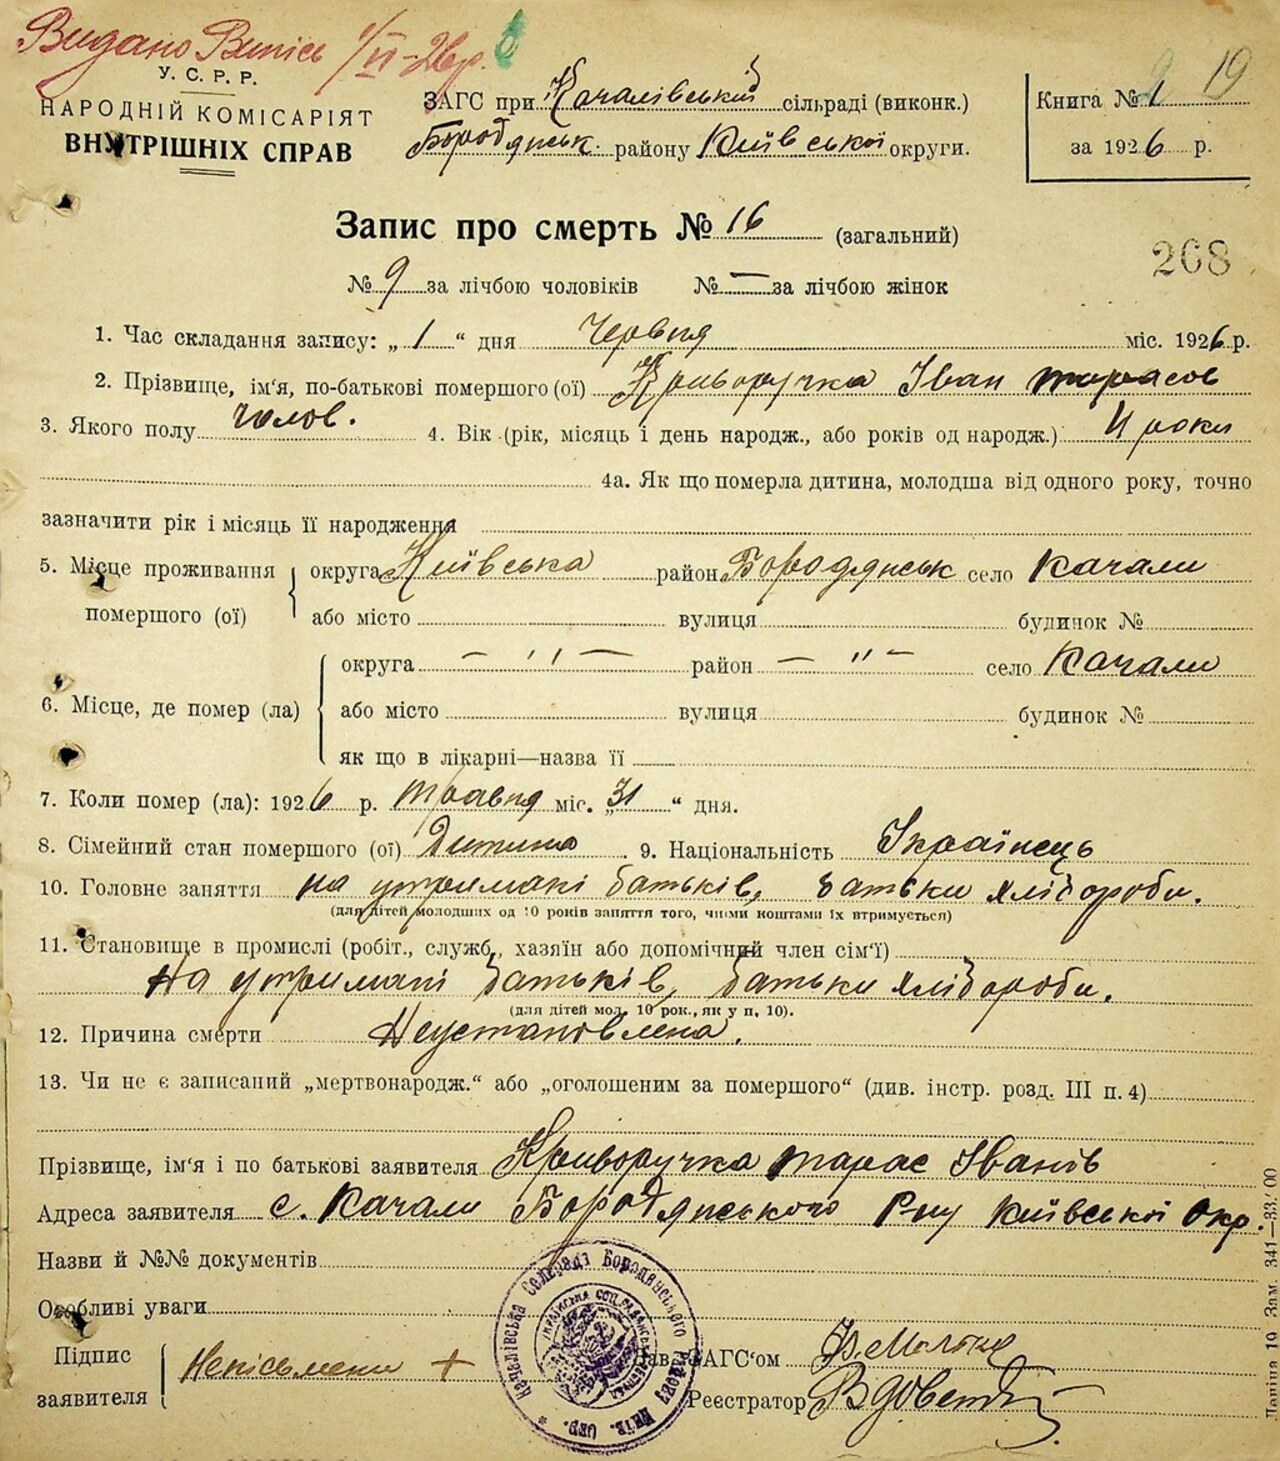 Видано Випісь 1/VI-26р.
У. С. Р. Р.
НАРОДНІЙ КОМІСАРІЯТ
ВНУТРІШНІХ СПРАВ
ЗАГС при Качалівській сільраді (виконк.)
Бородянськ. району Київської округи.
19
Книга № 1
за 1926 р.
Запис про смерть № 16 (загальний)
268
№ 9 за лічбою чоловіків № — за лічбою жінок
1. Час складання запису: „ 1 “ дня Червня міс. 1926 р.
2. Прізвище, ім'я, по-батькові помершого (ої) Криворучка Іван тарасов
3. Якого полу чолов. 4. Вік (рік, місяць і день народж., або років од народж.) роки
4а. Як що померла дитина, молодша від одного року, точно
зазначити рік і місяць її народження
5. Місце проживання помершого (ої) округа Київська район Бородянськ село Качали
або місто вулиця будинок №
6. Місце, де помер (ла) округа — " — район — " — село Качали
або місто вулиця будинок №
як що в лікарні—назва її
7. Коли помер (ла): 1926 р. травня міс. „31 “ дня.
8. Сімейний стан помершого (ої) Дитина 9. Національність Українець
10. Головне заняття на утримані батьків, батьки хлібороби.
(для дітей молодших од 10 років заняття того, чиїми коштами їх втримується)
11. Становище в промислі (робіт., служб., хазяїн або допомічний член сім'ї)
На утримані батьків, батьки хлібороби.
(для дітей мол. 10 рок., як у п. 10).
12. Причина смерти Неустановлена.
13. Чи не є записаний „мертвонародж.“ або „оголошеним за помершого“ (див. інстр. розд. III п. 4)
Прізвище, ім'я і по батькові заявителя Криворучка тарас Іванов
Адреса заявителя с. Качали Бородянського Р-ну Київської Окр.
Назви й №№ документів
Особливі уваги
Підпис заявителя Неписьмени + Зав. ЗАГС'ом
Реєстратор
Качалівська Сельрада Бородянського Району Київ. Окр. *
Зам. 341—33/00